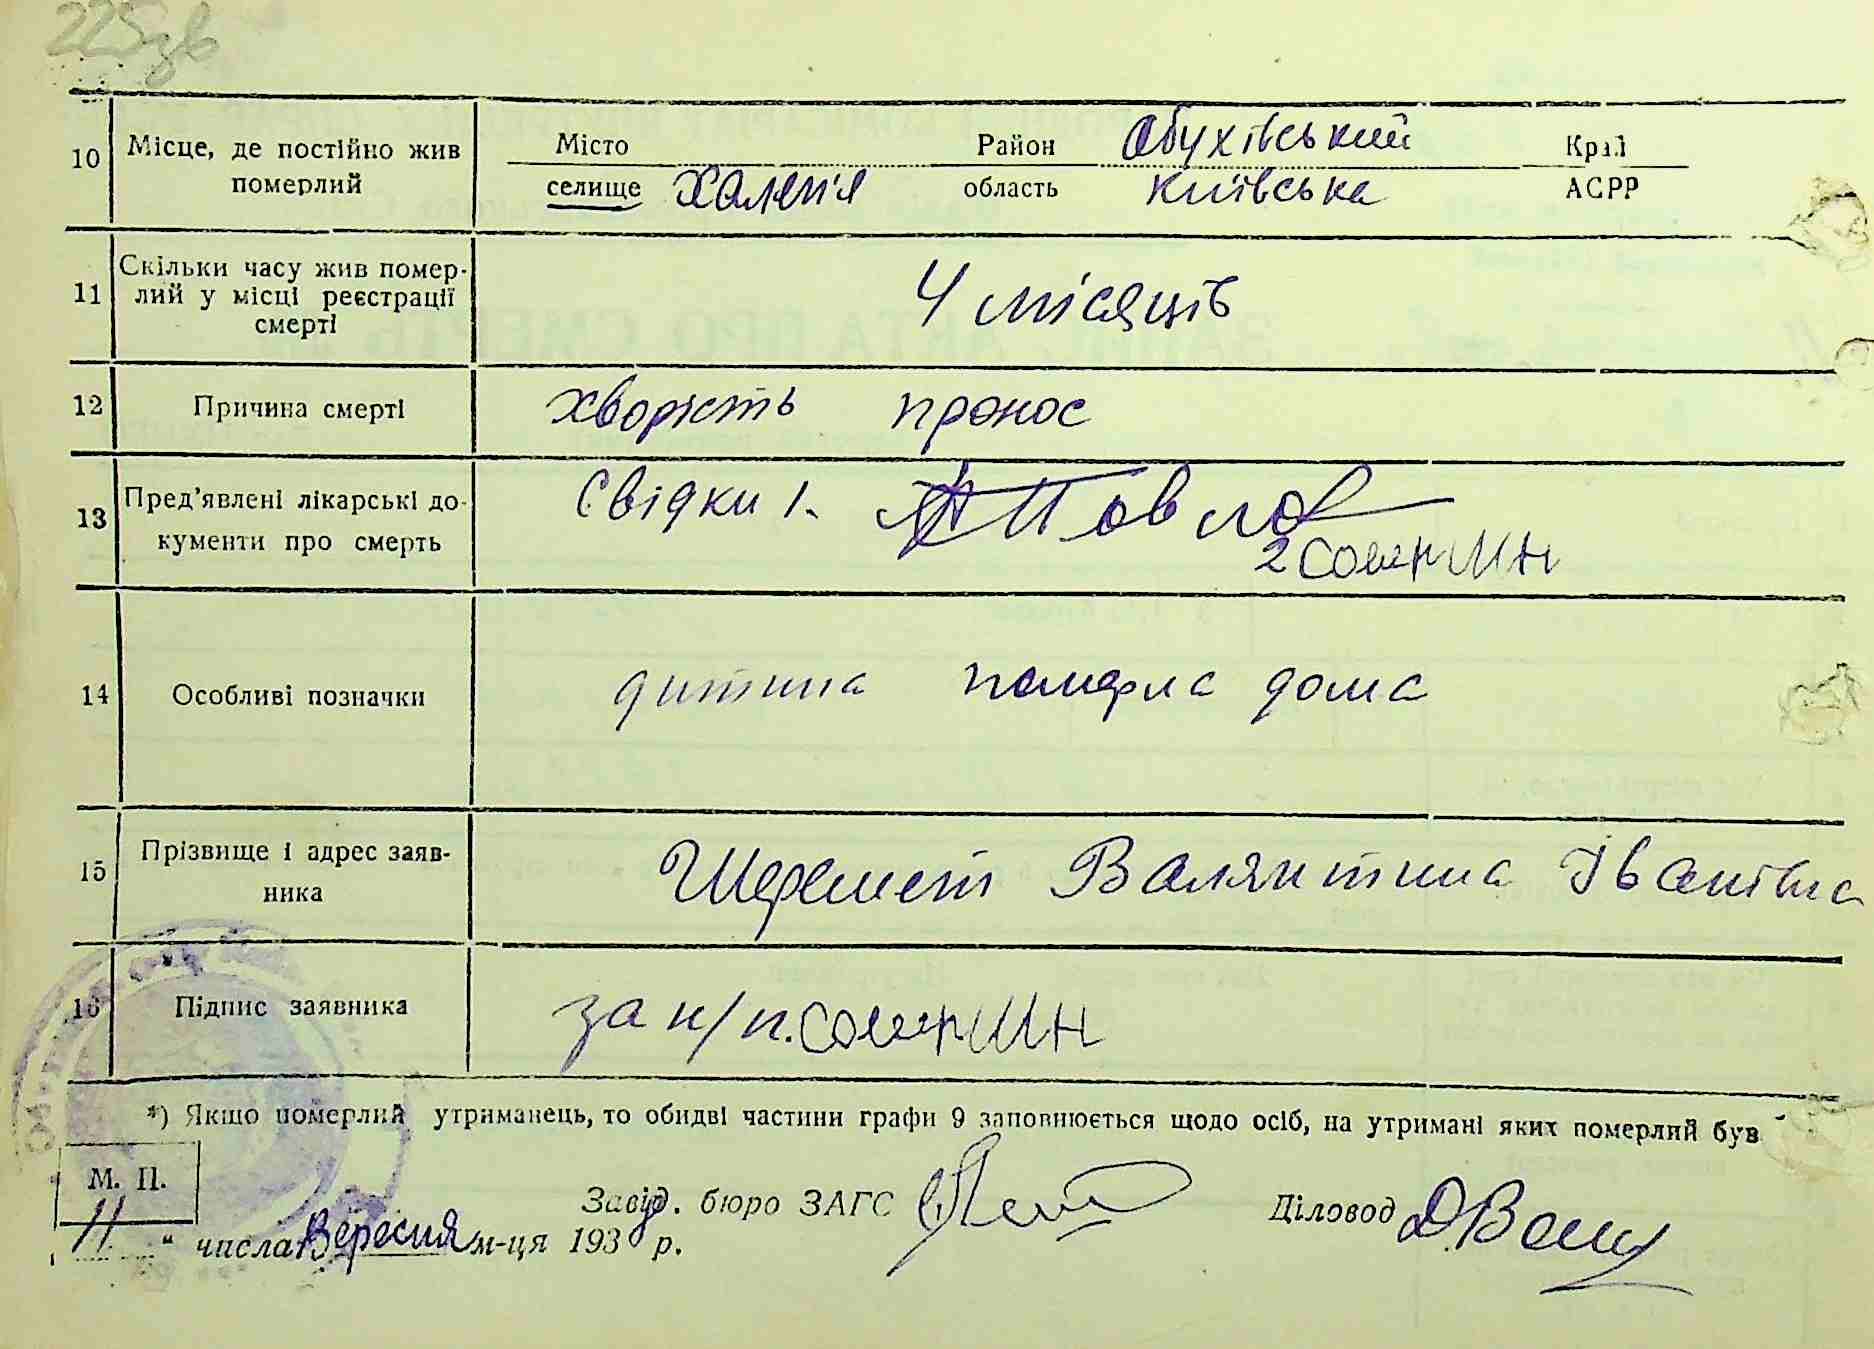 225зв
10 Місце, де постійно жив померлий Місто Район Обухівський Край
селище Халеп'я область Київська АСРР
11 Скільки часу жив помер-
лий у місці реєстрації
смерті 4 місяців
12 Причина смерті хворість пронос
13 Пред'явлені лікарські до-
кументи про смерть Свідки 1.
2
14 Особливі позначки дитина померла дома
15 Прізвище і адрес заяв-
ника Шеремет Валянтина Іванівна
16 Підпис заявника за н/п.
*) Якщо померлий утриманець, то обидві частини графи 9 заповнюється щодо осіб, на утримані яких померлий був
М. П.
Завід. бюро ЗАГС Діловод
„11“ числа Вересня м-ця 193 р.